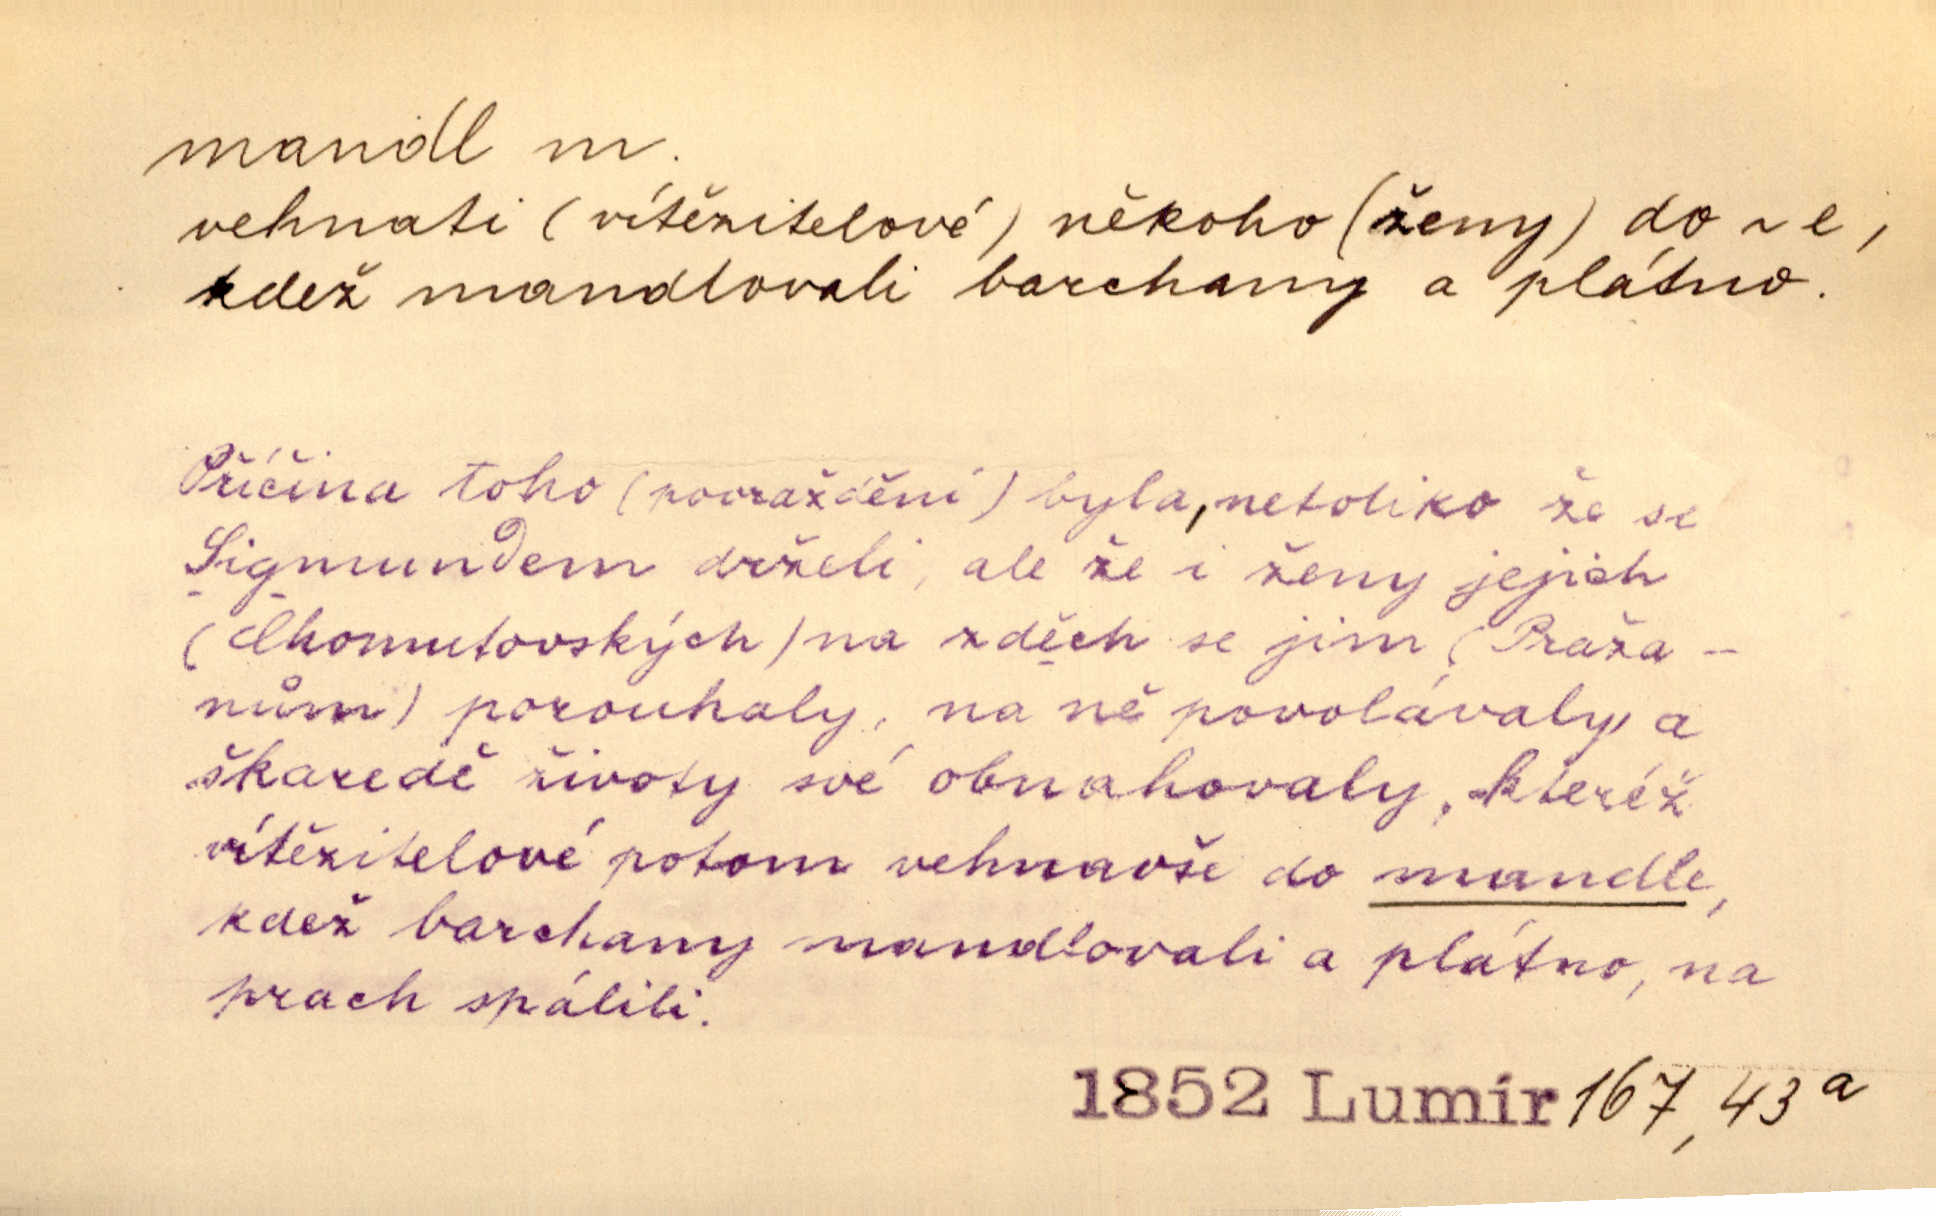 mandl m.
vehnati (vítězitelové) někoho (ženy) do ~e,
kdež mandlovali barchany a plátno.
Příčina toho (povraždění) byla, netoliko že se
Sigmundem drželi, ale že i ženy jejich
(Chomutovských) na zděch se jim (Praža-
nům) porouhaly, na ně povolávaly a
škaredě životy své obnahovaly, kteréž
vítězitelové potom vehnavše do mandle,
kdež barchany mandlovali a plátno, na
prach spálili.
1852 Lumír 167, 43a